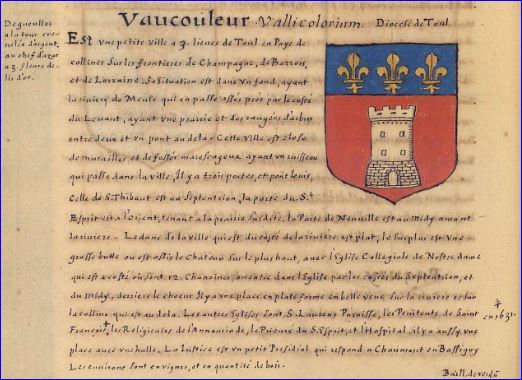 Vaucouleur Vallicolorium Diocese de Toul
De gueulles
a la tour cre-
nelée d'argent,
au chef d'azur
a 3. fleurs de
lis d'or.
Est vne petite ville a 3. lieues de Toul en Pays de
collines sur les frontieres de Champagne, de Barrois,
et de Lorraine. Sa situation est dans vn fond, ayant
la riuiere de Meuse qui en passe assés prés par le costé
du Leuant, ayant vne prairie et des rangées d'arbres
entre deux et vn pont au dela. Cette ville est close
de murailles, et de fossés marescageux ayant vn ruisseau
qui passe dans la ville. Il y a trois portes, et pont leuis,
Celle de S. Thibaut est au Septentrion, la porte du S.t
Esprit est a l'orient, tenant a la prairie susdite, la Porte de Neuuille est au Midy amont
la riuiere. Le dans de la ville qui est du costé de la riuiere est plat, le surplus est vne
grosse butte ou est assis le Chateau sur le plus haut, auec l'Eglise Collegiale de Nostre dame
qui est a costé ou sont 12. Chanoines, on entre dans l'Eglise par les costés du Septentrion, et
du Midy, derriere le choeur Il y a vne place en plate forme en belle veue sur la riuiere et sur
la colline qui est au dela. Les autres Eglises sont S. Laurens Paroisse, les Penitents de Saint
François, les Religieuses de l'Annonciade, le Prieuré du S. Esprit, et l'Hospital, il y a aussy vne
en 1631.
place auec vne halle. La Iustice est vn petit Presidial qui respond a Chaumont en Bassigny
Les enuirons sont en vignes, et en quantité de bois.